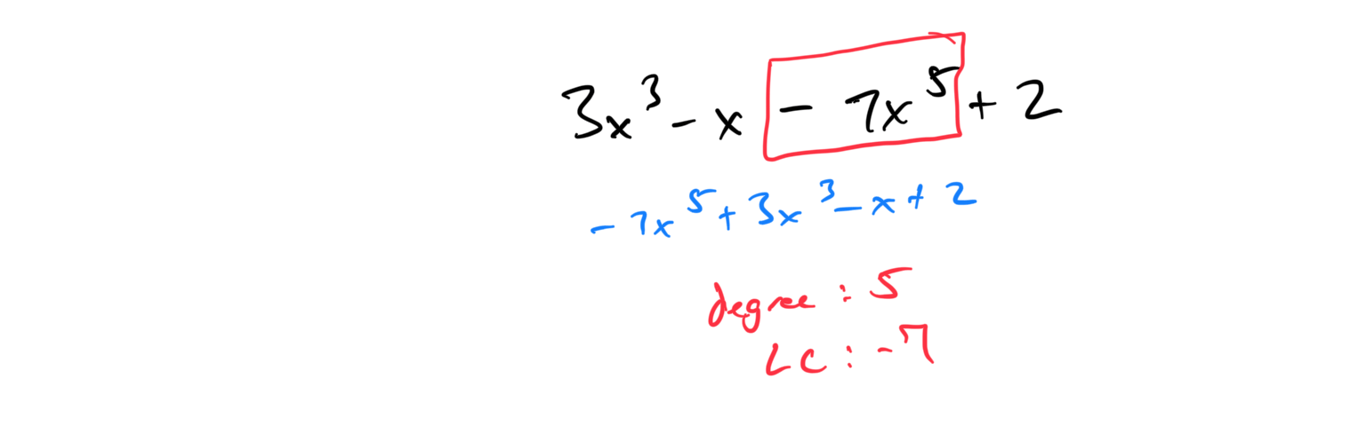 3x³ - x - 7x⁵ + 2
- 7x⁵ + 3x³ - x + 2
degree : 5
LC : -7